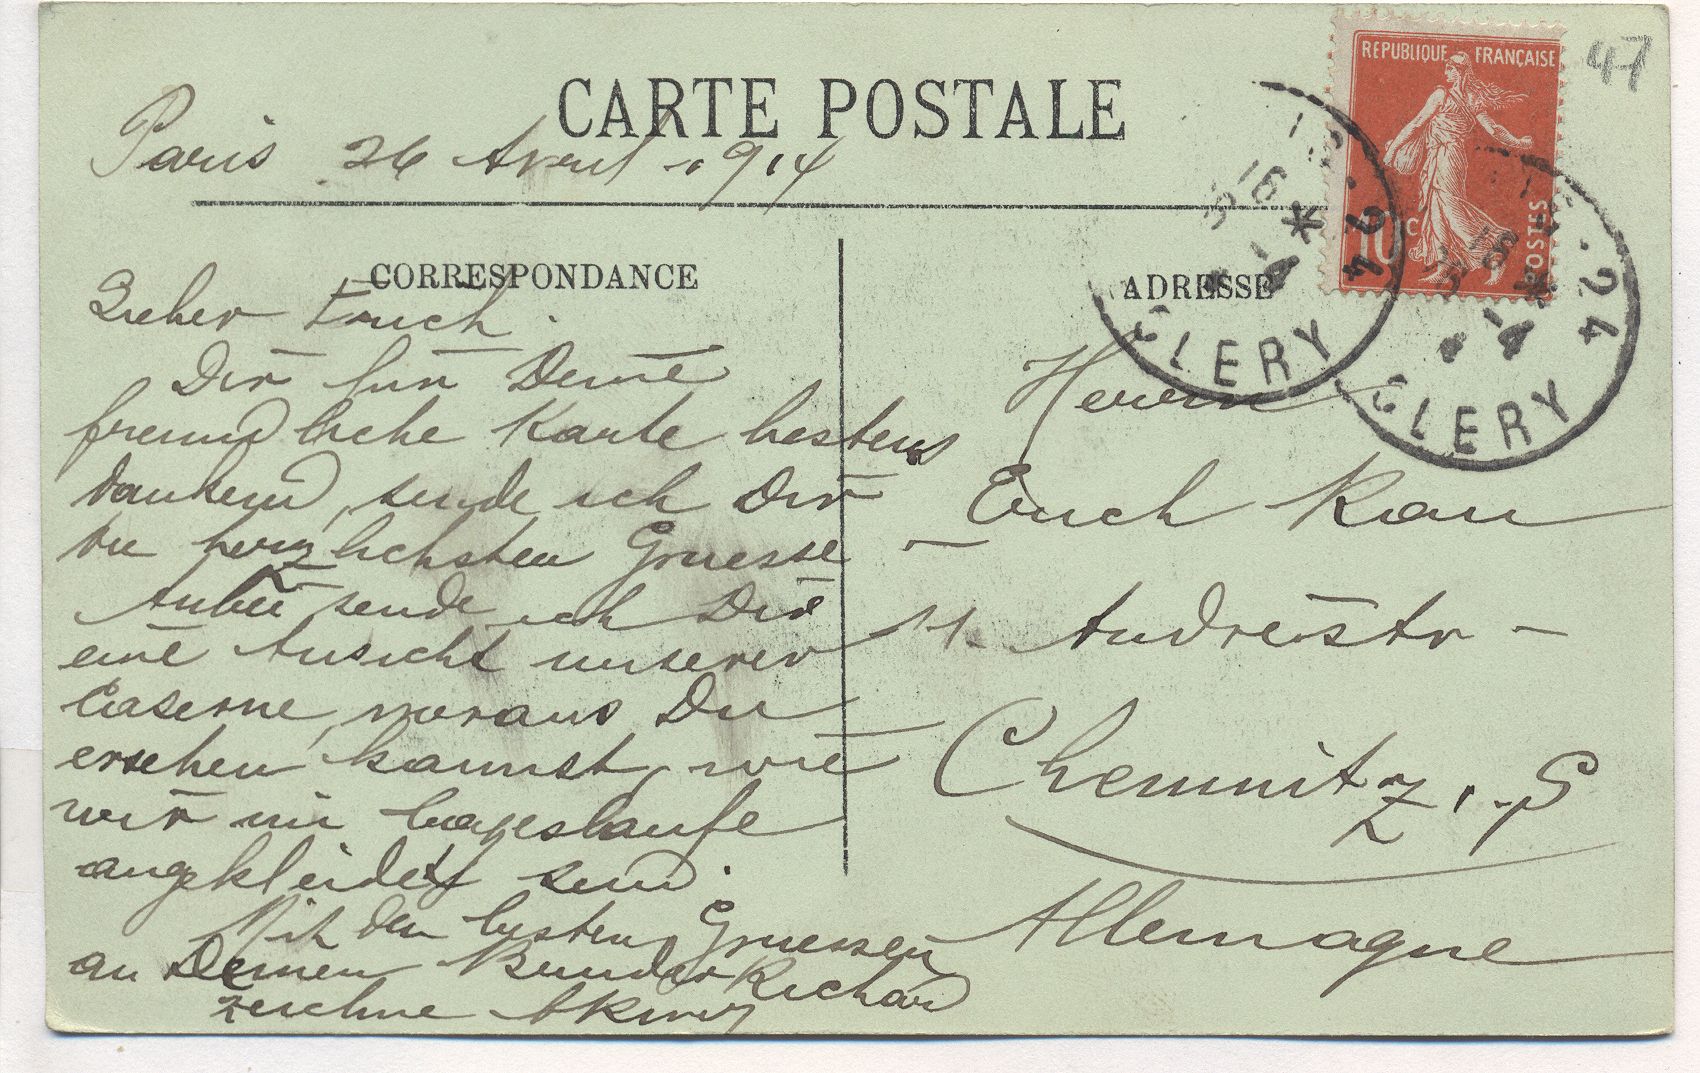 CARTE POSTALE
REPUBLIQUE FRANÇAISE
10c
POSTES
47
Paris 26 Avril 1914
CORRESPONDANCE
ADRESSE
CLERY
CLERY
24
Lieber Erich.
Dir für Deine
freundliche Karte bestens
dankend, sende ich Dir
die herzlichsten Gruesse
Anbei sende ich Dir
eine Ansicht unserer
Caserne, woraus Du
ersehen kannst, wie
wir im
angekleidet sind.
Mit den besten Gruessen
an Deinen Bruder Richard
zeichne
Herrn
Erich Rau
11. Andréstr -
Chemnitz i. S
Allemagne